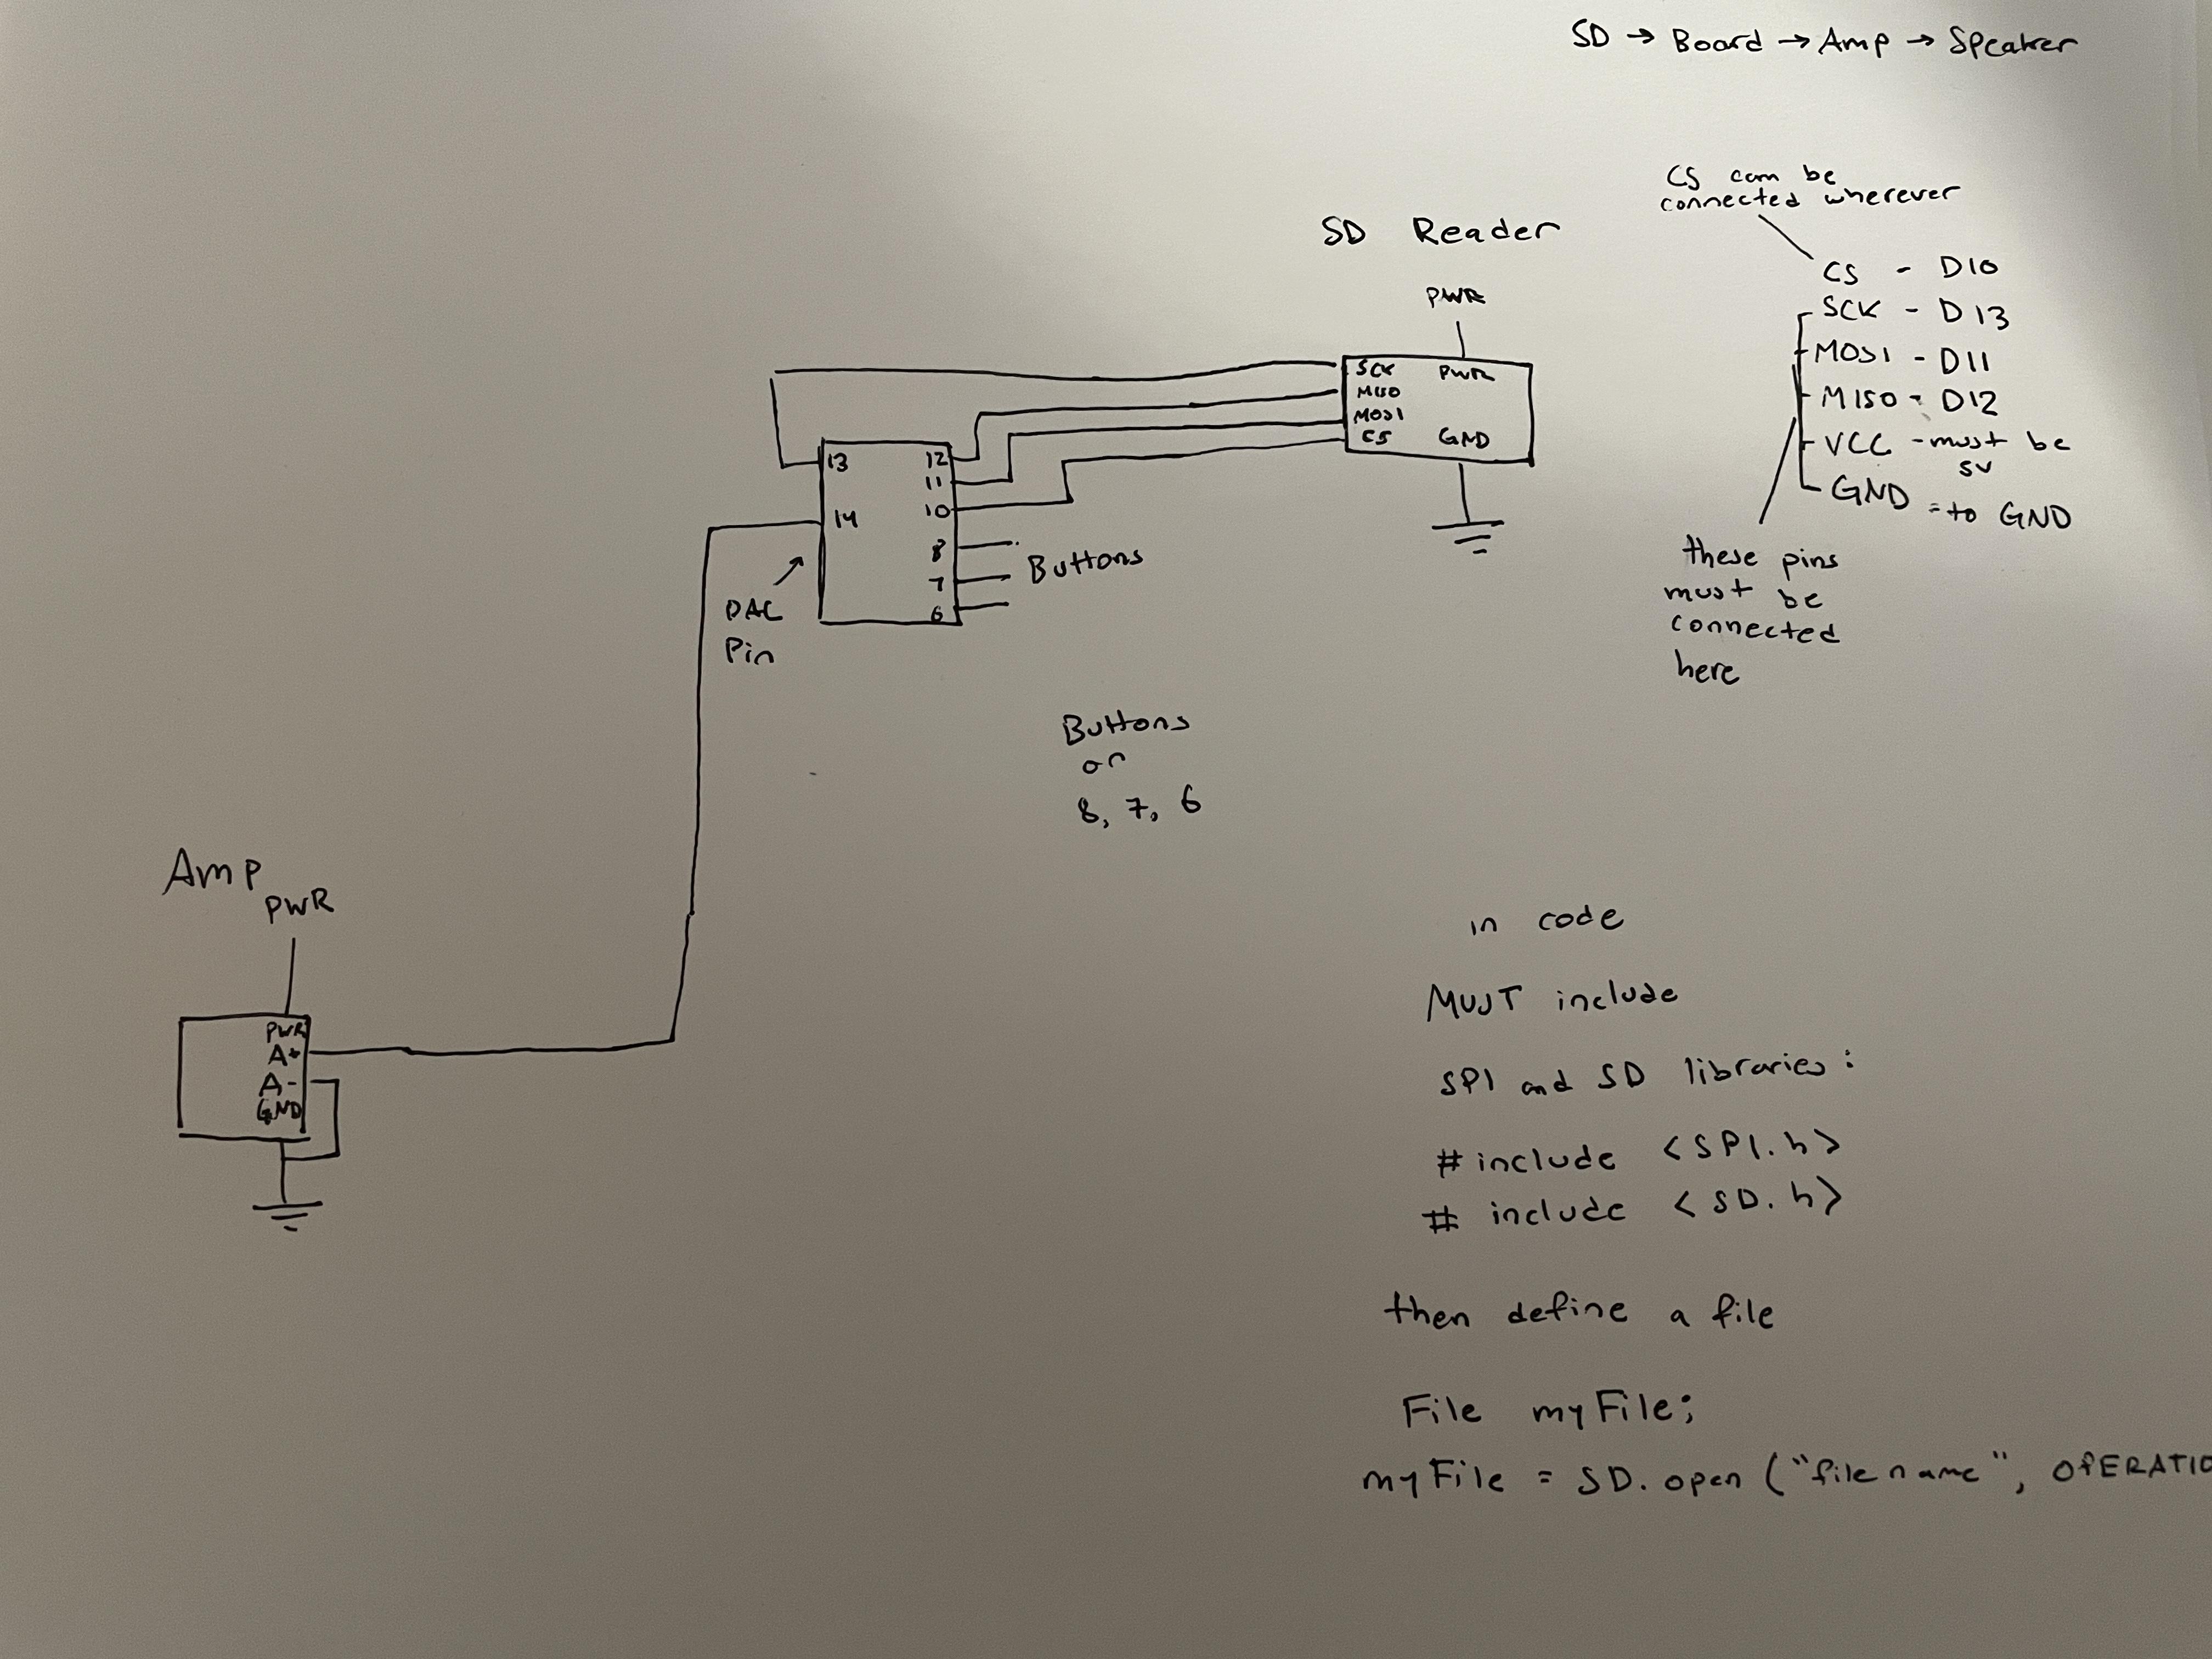 SD → Board → Amp → Speaker
CS can be
connected wherever
SD Reader
CS - D10
SCK - D13
MOSI - D11
MISO - D12
VCC - must be
5V
GND = to GND
these pins
must be
connected
here
PWR
SCK PWR
MISO
MOSI
CS GND
13 12
11
14 10
8
7
6
Buttons
DAC
Pin
Buttons
on
8, 7, 6
Amp
PWR
PWR
A+
A-
GND
in code
MUST include
SPI and SD libraries:
#include <SPI.h>
# include <SD.h>
then define a file
File myFile;
myFile = SD.open ("file name", OPERATIO